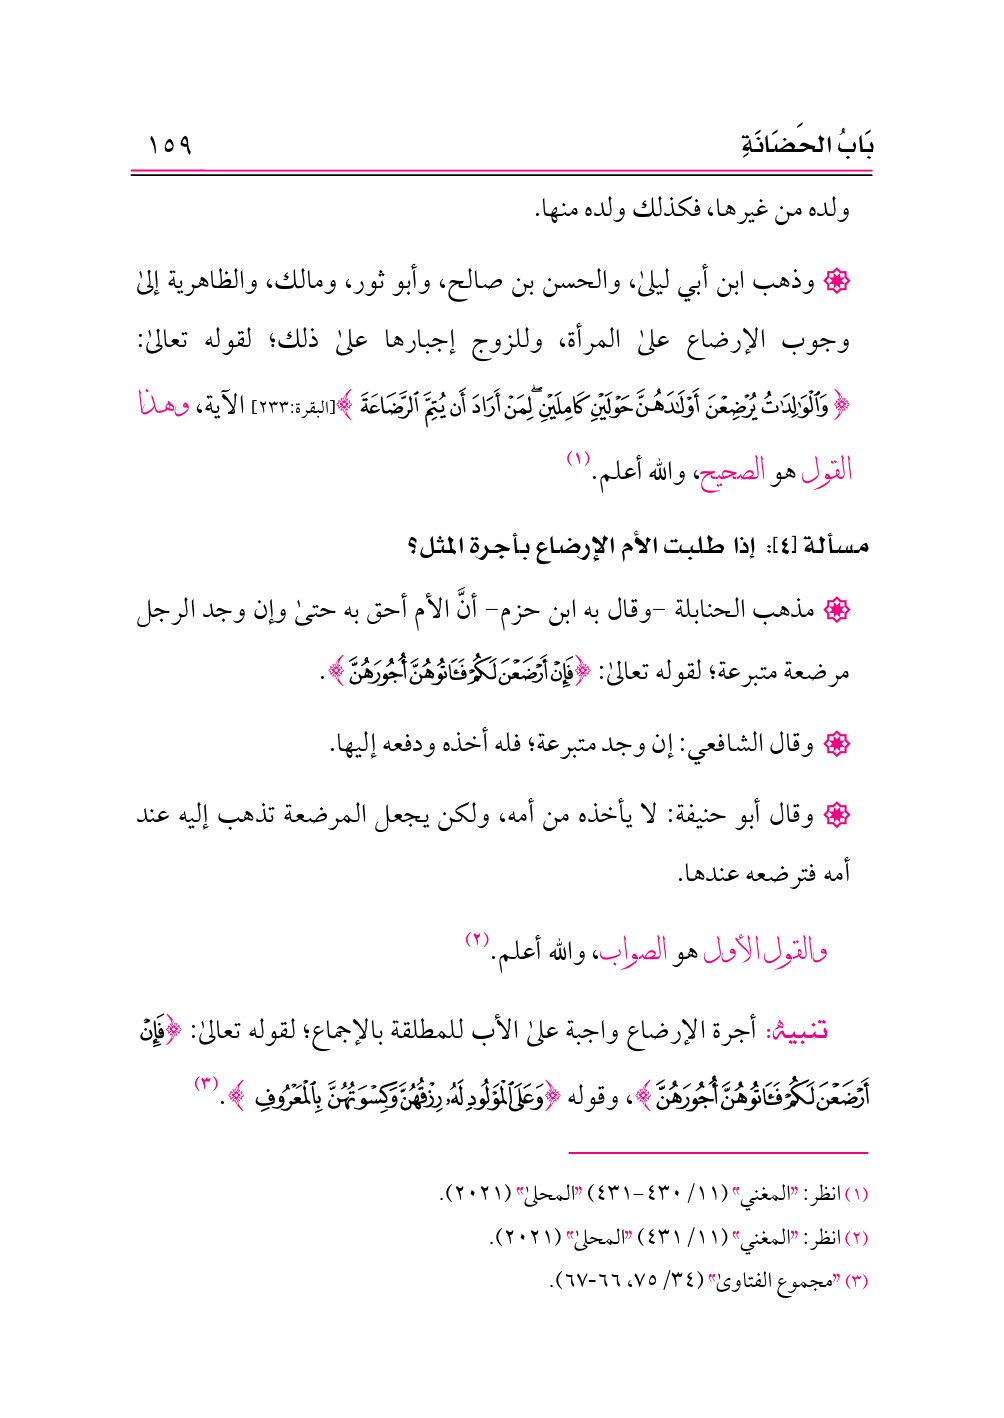 بَابُ الحَضَانَةِ ١٥٩
ولده من غيرها، فكذلك ولده منها.
وذهب ابن أبي ليلىٰ، والحسن بن صالح، وأبو ثور، ومالك، والظاهرية إلىٰ
وجوب الإرضاع علىٰ المرأة، وللزوج إجبارها علىٰ ذلك؛ لقوله تعالىٰ:
﴿وَٱلْوَٰلِدَٰتُ يُرْضِعْنَ أَوْلَٰدَهُنَّ حَوْلَيْنِ كَامِلَيْنِ ۖ لِمَنْ أَرَادَ أَن يُتِمَّ ٱلرَّضَاعَةَ﴾ [البقرة:٢٣٣] الآية، وهذا
القول هو الصحيح، والله أعلم.(١)
مسألة [٤]: إذا طلبت الأم الإرضاع بأجرة المثل؟
مذهب الحنابلة -وقال به ابن حزم- أنَّ الأم أحق به حتىٰ وإن وجد الرجل
مرضعة متبرعة؛ لقوله تعالىٰ: ﴿فَإِنْ أَرْضَعْنَ لَكُمْ فَـَٔاتُوهُنَّ أُجُورَهُنَّ﴾.
وقال الشافعي: إن وجد متبرعة؛ فله أخذه ودفعه إليها.
وقال أبو حنيفة: لا يأخذه من أمه، ولكن يجعل المرضعة تذهب إليه عند
أمه فترضعه عندها.
والقول الأول هو الصواب، والله أعلم.(٢)
تنبيهٌ: أجرة الإرضاع واجبة علىٰ الأب للمطلقة بالإجماع؛ لقوله تعالىٰ: ﴿فَإِنْ
أَرْضَعْنَ لَكُمْ فَـَٔاتُوهُنَّ أُجُورَهُنَّ﴾، وقوله ﴿وَعَلَى ٱلْمَوْلُودِ لَهُۥ رِزْقُهُنَّ وَكِسْوَتُهُنَّ بِٱلْمَعْرُوفِ﴾.(٣)
(١) انظر: "المغني" (١١/ ٤٣٠-٤٣١) "المحلىٰ" (٢٠٢١).
(٢) انظر: "المغني" (١١/ ٤٣١) "المحلىٰ" (٢٠٢١).
(٣) "مجموع الفتاوىٰ" (٣٤/ ٧٥، ٦٦-٦٧).